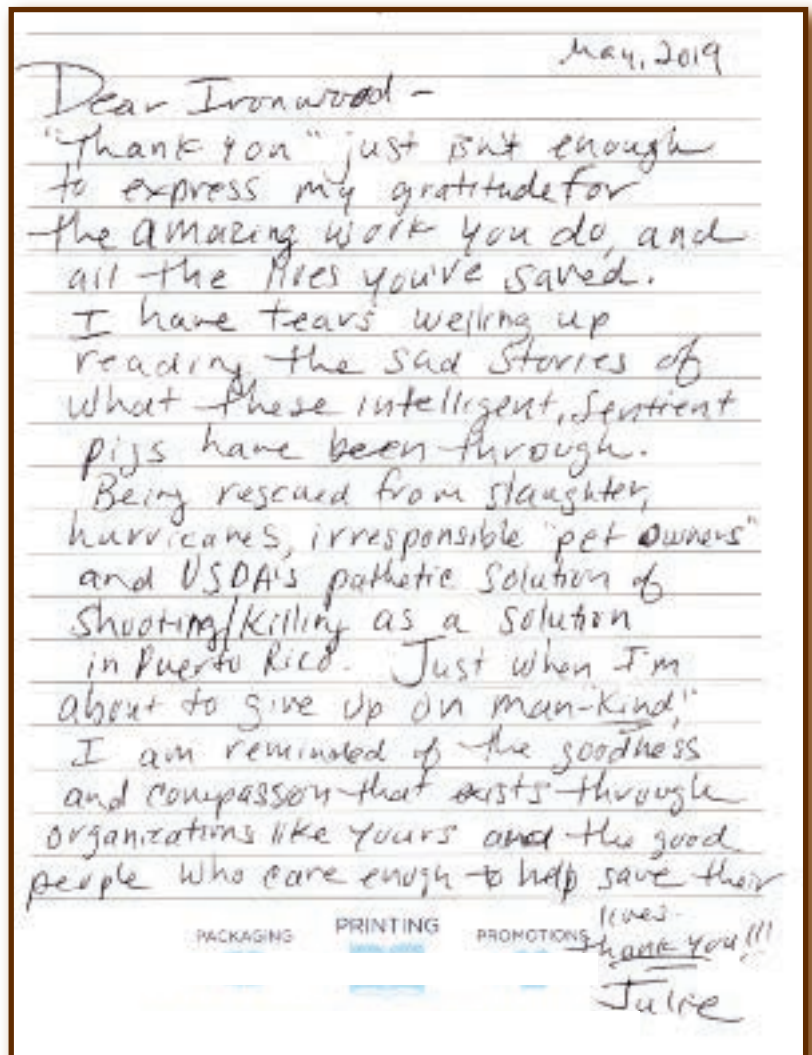 May, 2019
Dear Ironwood -
"Thank you" just isn't enough
to express my gratitude for
the amazing work you do, and
all the lives you've saved.
I have tears welling up
reading the sad stories of
what these intelligent, sentient
pigs have been through.
Being rescued from slaughter,
hurricanes, irresponsible "pet owners"
and USDA's pathetic solution of
shooting/killing as a solution
in Puerto Rico. Just when I'm
about to give up on man-"kind,"
I am reminded of the goodness
and compasson that exists through
organizations like yours and the good
people who care enogh to help save their
lives.
PACKAGING PRINTING PROMOTIONS
Thank you!!!
Julie